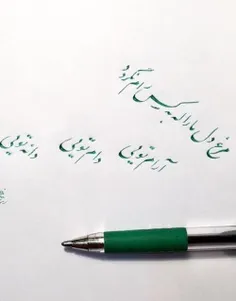 مرغ دل ما را که به کس رام نگردد
آرام تویی دام تویی دانه تویی